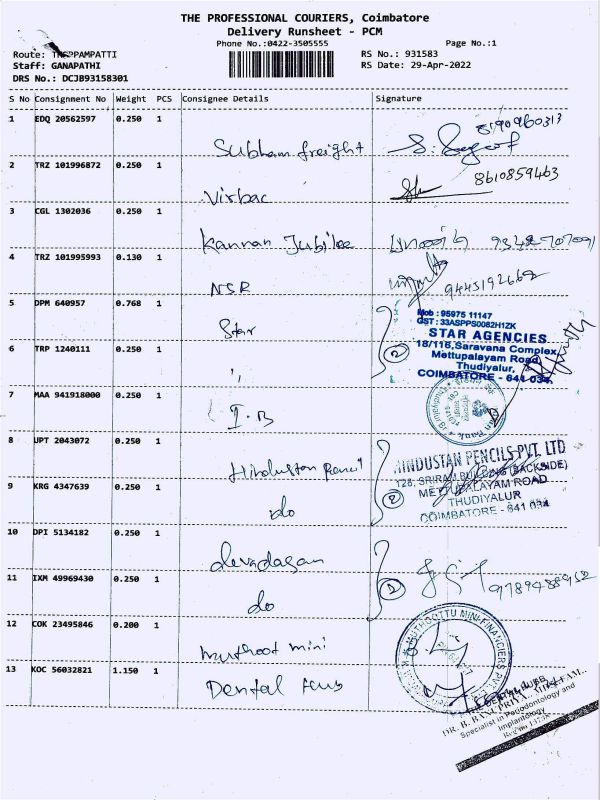 THE PROFESSIONAL COURIERS, Coimbatore
Delivery Runsheet - PCM
Phone No.:0422-3505555 Page No.:1
Route: PAMPATTI RS No.: 931583
Staff: GANAPATHI RS Date: 29-Apr-2022
DRS No.: DCJB93158301
S No Consignment No Weight PCS Consignee Details Signature
1 EDQ 20562597 0.250 1
Subham freight
2 TRZ 101996872 0.250 1
Virbac 8610859463
3 CGL 1302036 0.250 1
Kannan Jubilee
4 TRZ 101995993 0.130 1
NSR 9445192662
5 DPM 640957 0.768 1
Star
Mob : 95975 11147
GST : 33ASPPS0082H1ZK
STAR AGENCIES
18/116,Saravana Complex,
Mettupalayam Road,
Thudiyalur,
COIMBATORE - 641 034.
2
6 TRP 1240111 0.250 1
"
7 MAA 941918000 0.250 1
I.B
8 UPT 2043072 0.250 1
Hindustan Pencil
HINDUSTAN PENCILS PVT. LTD
128, SRIRAM BUILDING (BACKSIDE)
METTUPALAYAM ROAD
THUDIYALUR
COIMBATORE - 641 034
2
9 KRG 4347639 0.250 1
do
10 DPI 5134182 0.250 1
devadasan
2
11 IXM 49969430 0.250 1
do
12 COK 23495846 0.200 1
muthoot mini
13 KOC 56032821 1.150 1
Dental
Specialist in Periodontology and
Implantology